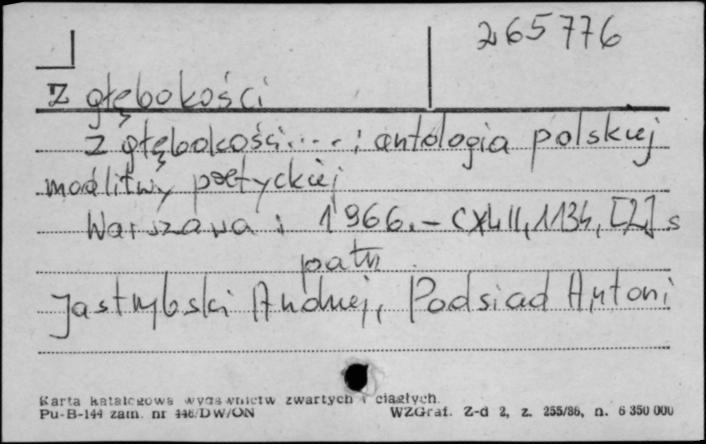 265776
Z głębokości
Z głębokości.... : antologia polskiej
modlitwy poetyckiej
Warszawa : 1966. – CXLII, 1134, [2] s
patrz
Jastrzębski Andrzej, Podsiad Antoni
Karta katalogowa wydawnictw zwartych i ciągłych.
Pu-B-144 zam. nr 446/DW/ON WZGraf. Z-d 2, z. 255/86, n. 6 350 000